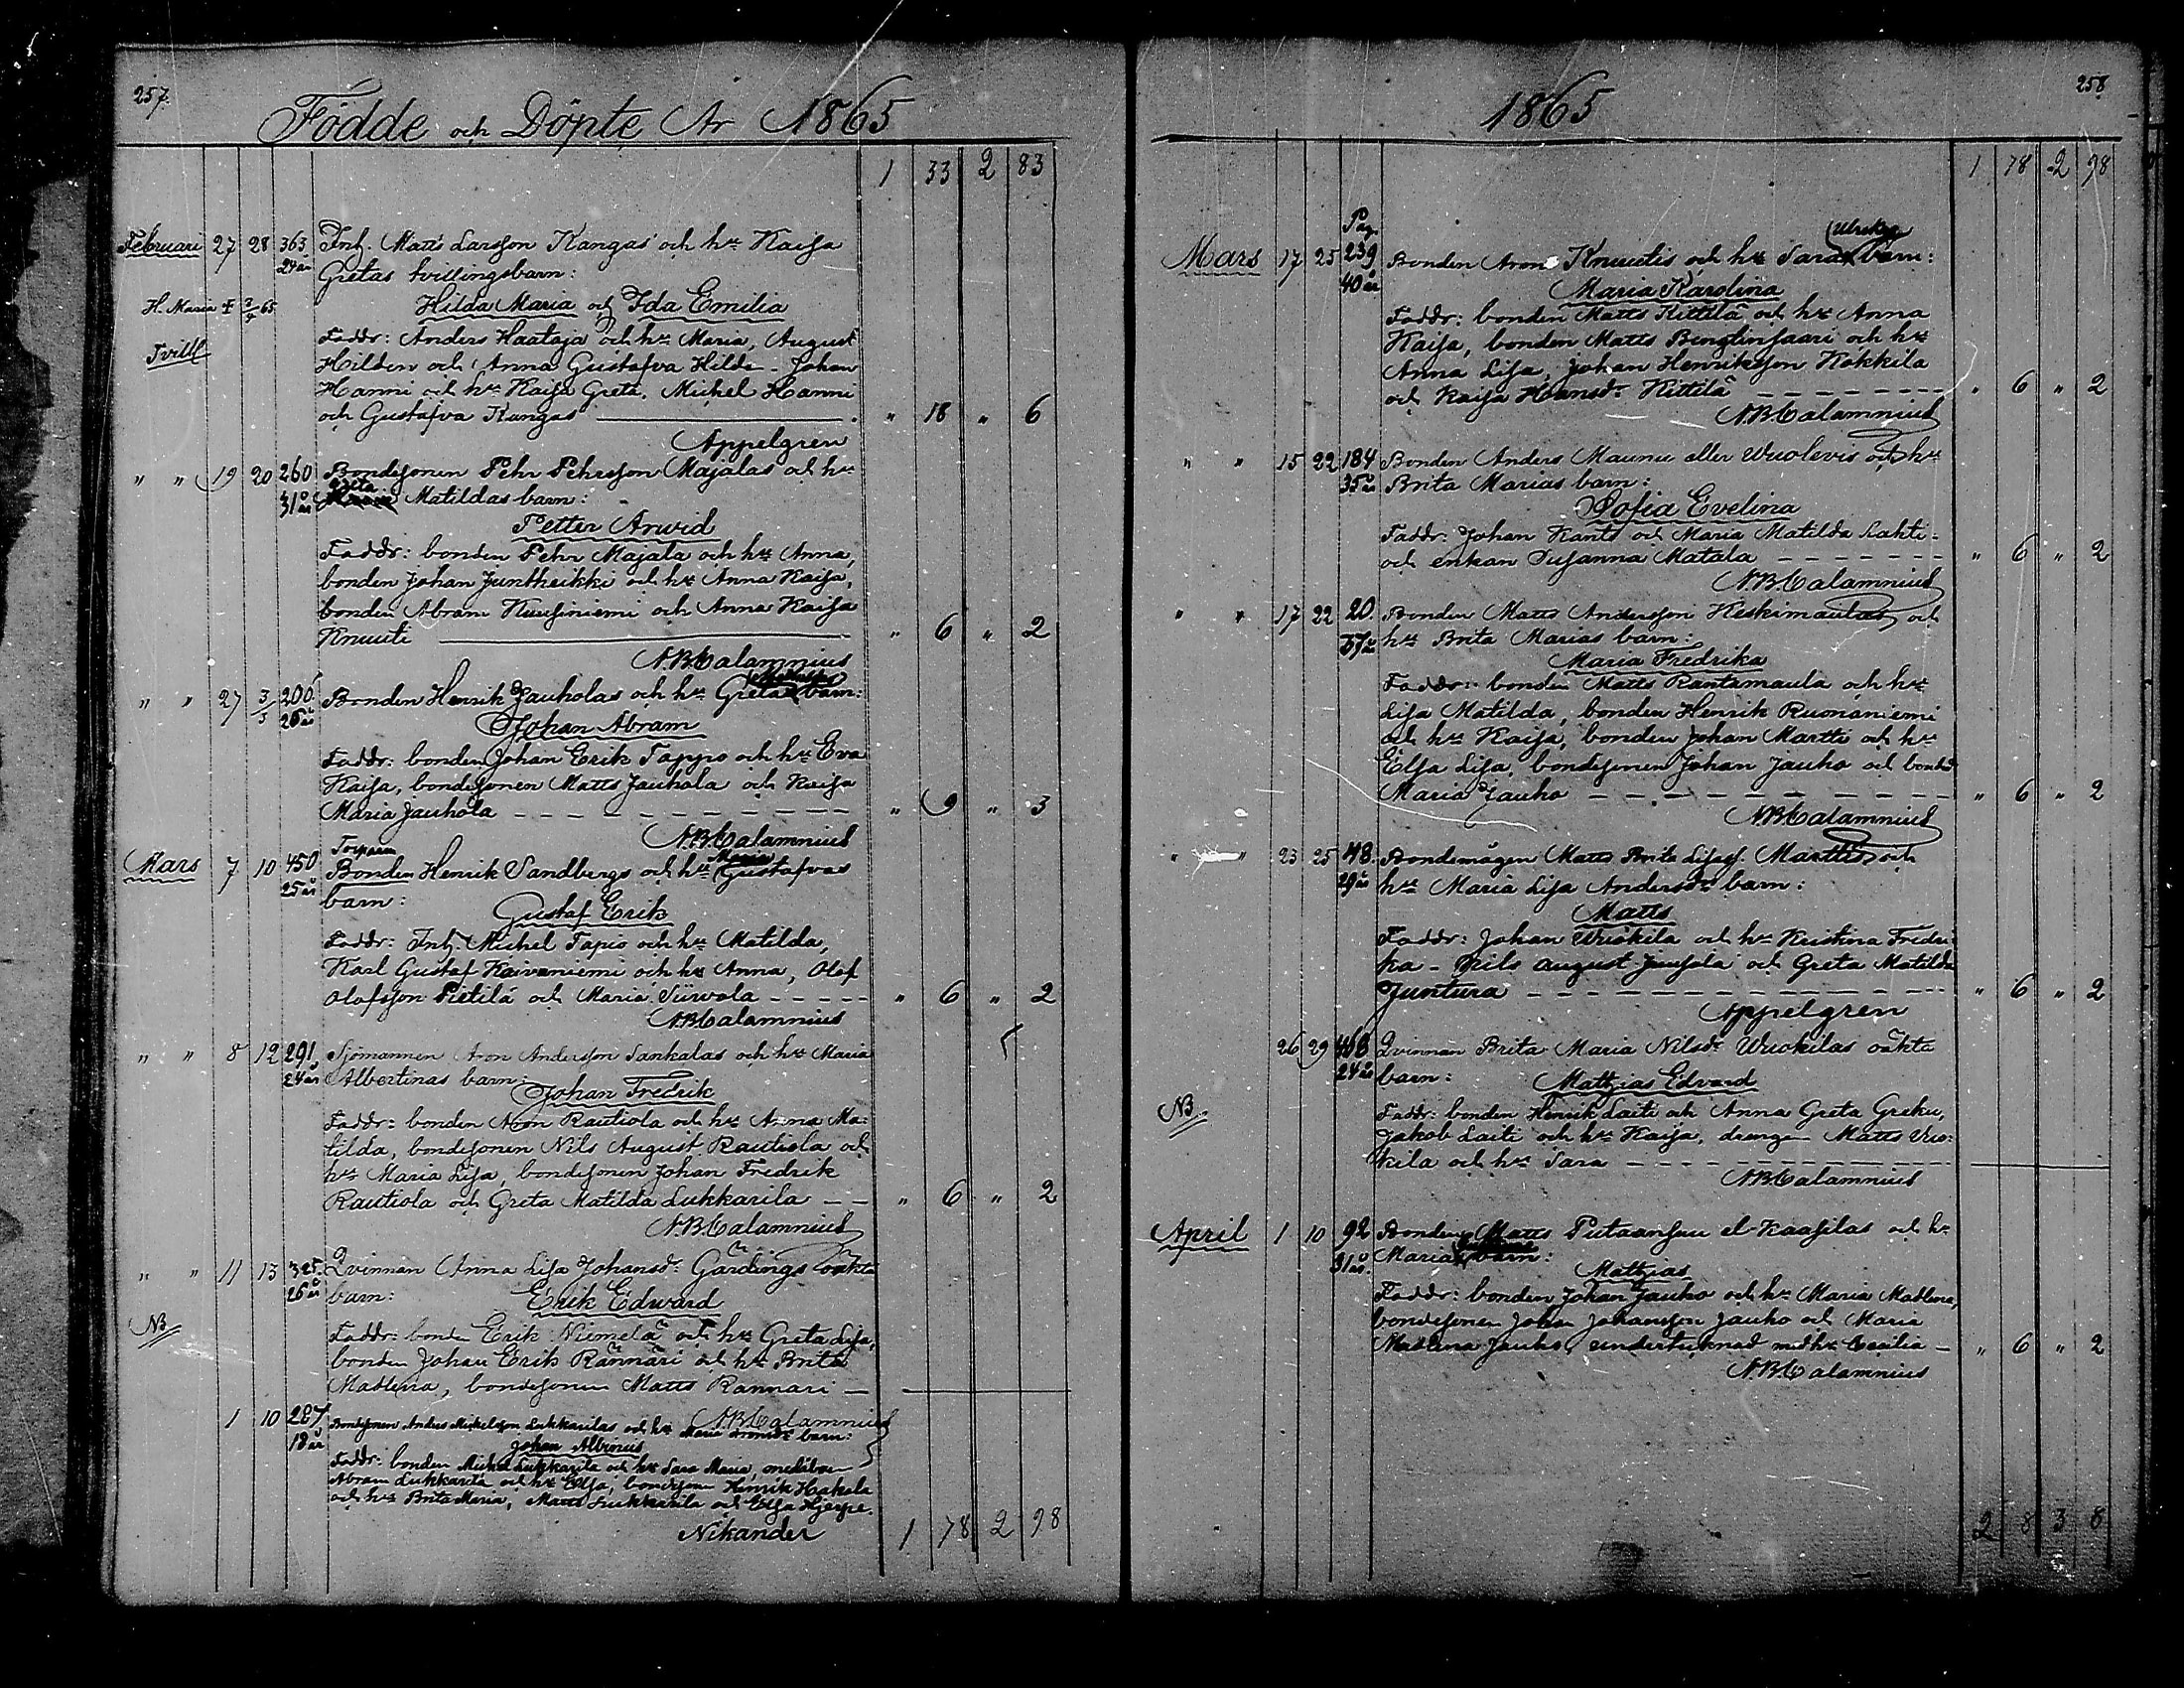 257.
Födde och Döpte År 1865
1 33 2 83
Februari 27 28 363 Inh. Matts Larsson Kangas och hu Kaisa
24 år Gretas tvillingsbarn:
H. Maria † 3/4 65 Hilda Maria och Ida Emilia
Faddr: Anders Haataja och hu Maria, August
Tvill
Hilden och Anna Gustafva Hilden - Johan
Hanni och hu Kaisa Greta, Michel Hanni
och Gustafva Kangas " 18 " 6
Appelgren
" " 19 20 260 Bondesonen Pehr Pehrsson Majalas och hu
31 år Greta Matildas barn:
Petter Arwid
Faddr: bonden Pehr Majala och hu Anna,
bonden Johan Juntheikki och hu Anna Kaisa,
bonden Abram Kuusiniemi och Anna Kaisa
Knuuti " 6 " 2
N.B. Calamnius
" " 27 3/3 200 Bonden Henrik Jauholas och hu Greta barn:
26 år Johan Abram
Faddr: bonden Johan Erik Tappo och hu Eva
Kaisa, bondesonen Matts Jauhola och Kaisa
Maria Jauhola " 9 " 3
N.B. Calamnius
Torparen Maria
Mars 7 10 450 Bonden Henrik Sandbergs och hu Gustafvas
25 år barn:
Gustaf Erik
Faddr: Inh. Michel Tapio och hu Matilda,
Karl Gustaf Kaivaniemi och hu Anna, Olof
Olofsson Pietilä och Maria Siirvola " 6 " 2
N.B. Calamnius
" " 8 12 291 Sjömannen Aron Andersson Sankalas och hu Maria
24 år Albertinas barn:
Johan Fredrik
Faddr: bonden Aron Rautiola och hu Anna Ma-
tilda, bondesonen Nils August Rautiola och
hu Maria Lisa, bondesonen Johan Fredrik
Rautiola och Greta Matilda Lukkarila " 6 " 2
N.B. Calamnius
" " 11 13 325 Qvinnan Anna Lisa Johansdr Gärdings oäkta
26 år barn: Erik Edward
NB
Faddr: bonden Erik Niemelä och hu Greta Lisa,
bonden Johan Erik Rännäri och hu Brita
Madlena, bondesonen Matts Rännäri
N.B. Calamnius
1 10 287 Bondesonen Anders Mickelsson Lukkarilas och hu Maria Aronsdr barn:
18 år Johan Albinus
Faddr: bonden Michel Lukkarila och hu Sara Maria,
Abram Lukkarila och hu Elsa, bondesonen Henrik Hakala
och hu Brita Maria, Matts Lukkarila och Elsa Hjerpe.
Nikander
1 78 2 98
258
1865
1 78 2 98
Pag. Ulrikas
Mars 17 25 239 Bonden Aron Knuutis och hu Sara barn:
40 år Maria Karolina
Faddr: bonden Matts Kittilä och hu Anna
Kaisa, bonden Matts Penglinsaari och hu
Anna Lisa, Johan Henriksson Kokkila
och Kaisa Hansdr Kittilä " 6 " 2
N.B. Calamnius
" " 15 22 184 Bonden Anders Maunu eller Wuolevis och hu
35 år Brita Marias barn:
Sofia Evelina
Faddr: Johan Kanto och Maria Matilda Lahti
och enkan Susanna Matala " 6 " 2
N.B. Calamnius
" " 17 22 20. Bonden Matts Andersson Keskimaulas och
37 år hu Brita Marias barn:
Maria Fredrika
Faddr: bonden Matts Rantamaula och hu
Lisa Matilda, bonden Henrik Ruonaniemi
och hu Kaisa, bonden Johan Martti och hu
Elsa Lisa, bondesonen Johan Jauho och
Maria Jauho " 6 " 2
N.B. Calamnius
" " 23 25 48. Bondemågen Matts Brita Lisas. Marttis och
29 år hu Maria Lisa Andersdr barn:
Matts
Faddr: Johan Wuokila och hu Kristina Fredri
ka - Nils August Junsola och Greta Matilda
Juntura " 6 " 2
Appelgren
26 29 468 Qvinnan Brita Maria Nilsdr Wuokilas oäkta
24 år barn: Mathias Edvard
NB.
Faddr: bonden Henrik Laiti och Anna Greta Greku,
Jakob Laiti och hu Kaisa, drängen Matts Vuo-
kila och hu Sara
N.B. Calamnius
April 1 10 92 Bonden Matts Putaansuu el. Kaasilas och hu
31 år Marias barn:
Mathias
Faddr: bonden Johan Jauho och hu Maria Madlena,
bondesonen Johan Johansson Jauho och Maria
Madlena Jauho, undertecknad med hu Cecilia " 6 " 2
N.B. Calamnius
2 8 3 8